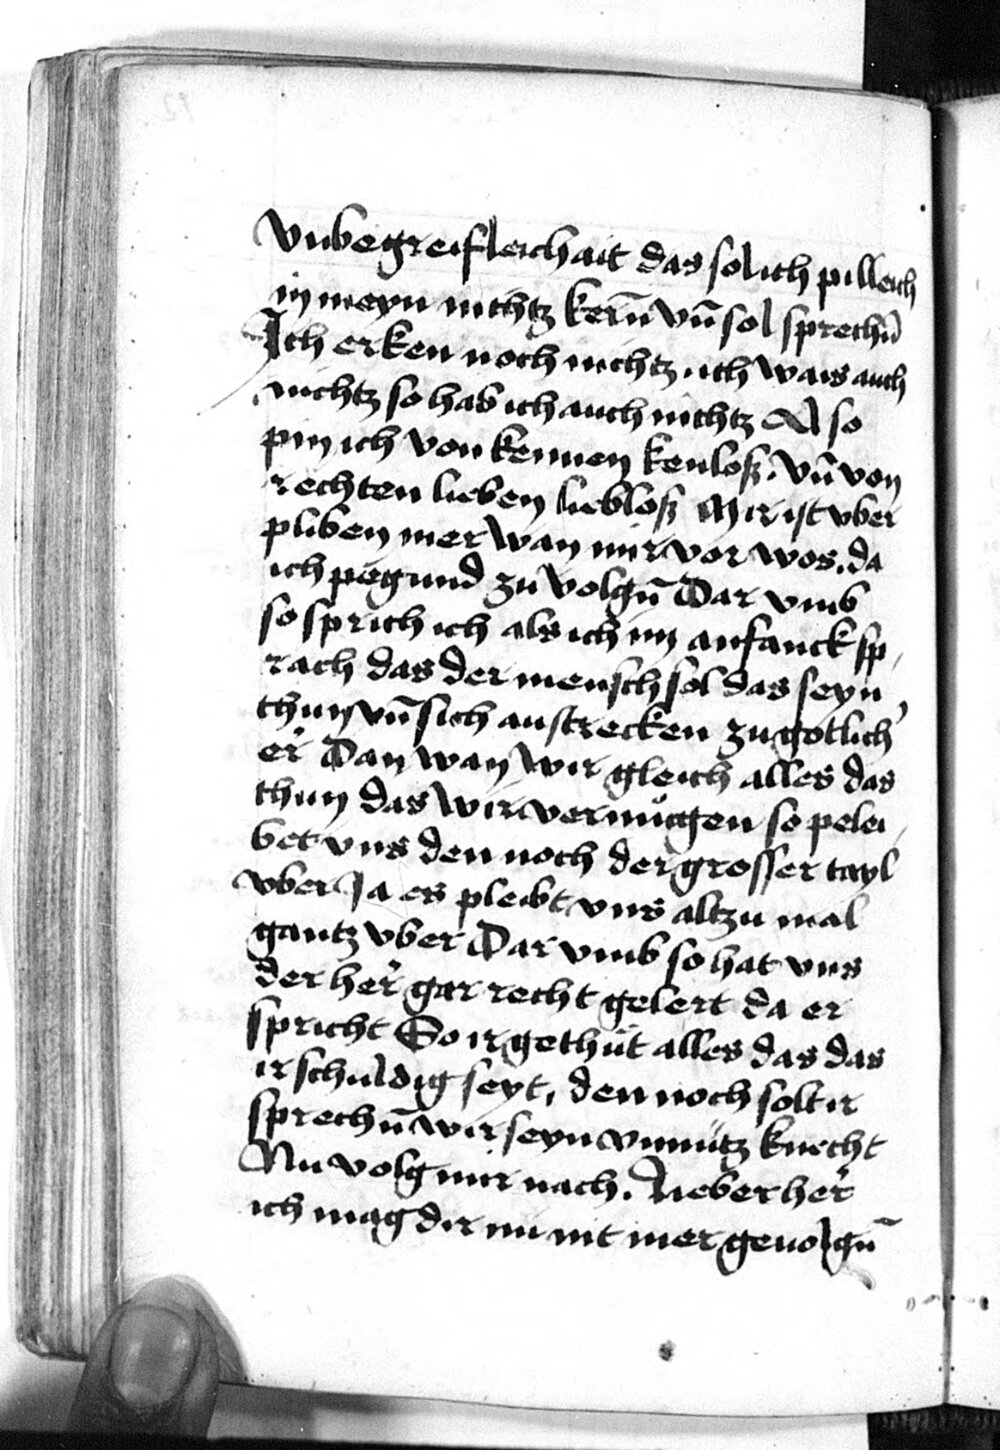 vnbegreifleichait das sol ich pilleich
in meyn nichtz kern̄ vn̄ sol sprechn̄
Ich erken noch nichtz . ich wais auch
nichtz so hab ich auch nichtz Also
pin ich von kennen kenloß . vn̄ von
rechten lieben liebloß Mir ist vber
pliben mer wan mir vor wos . da
ich pegund zu volgn̄ Dar vmb
so sprich ich als ich im anfanck sp
rach das der mensch sol das seyn
thun vn̄ sich austrecken zu gotlich̛
er̄ Dan wan wir gleich alles das
thun das wir vermuͤgen so pelei
bet vns den noch der grosser tayl
vber Ja es pleibt vns altzu mal
gantz vber Dar vmb so hat vns
der her̄ gar recht gelert da er
spricht So ir gethuͤt alles das das
ir schuldig seyt , den noch solt ir
sprechn̄ wir seyn vnnuͤtz knecht
Nu volg mir nach . Lieber her̄
ich mag dir nu nit mer geuolgn̄